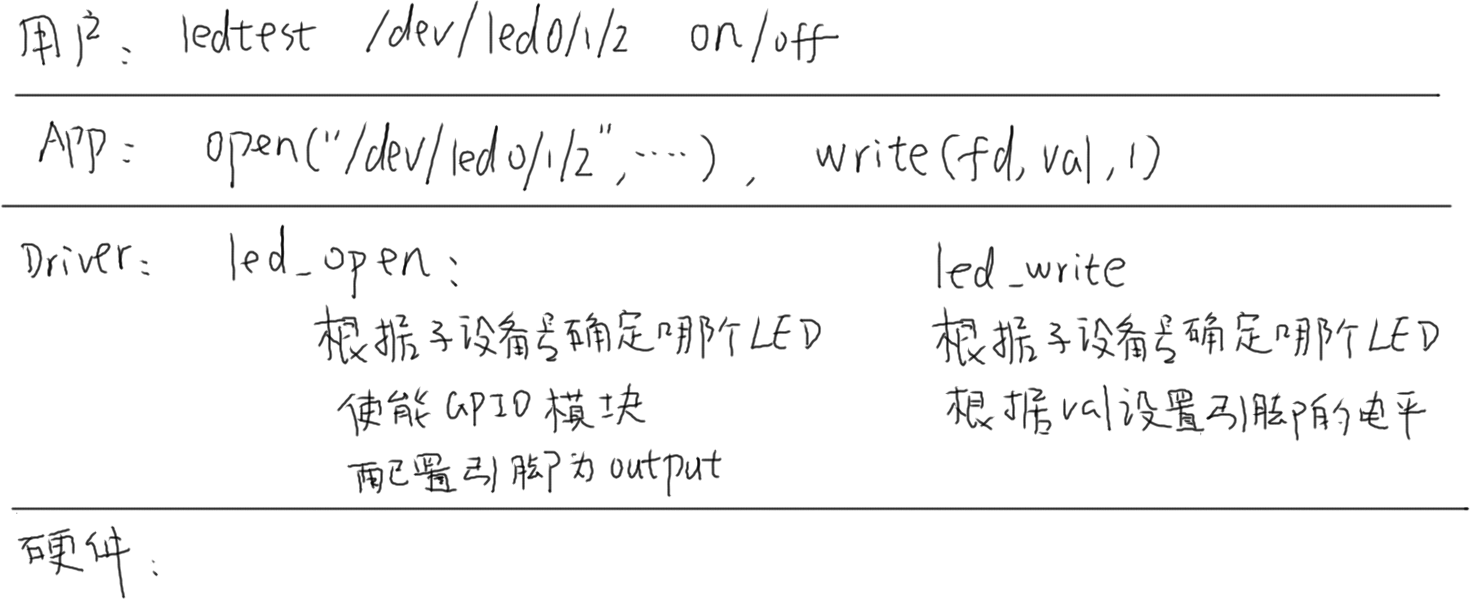 用户: ledtest /dev/led0/1/2 on/off
App: open("/dev/led0/1/2",....), write(fd, val, 1)
Driver: led_open: led_write
根据子设备号确定哪个LED 根据子设备号确定哪个LED
使能GPIO模块 根据val设置引脚的电平
配置引脚为output
硬件: